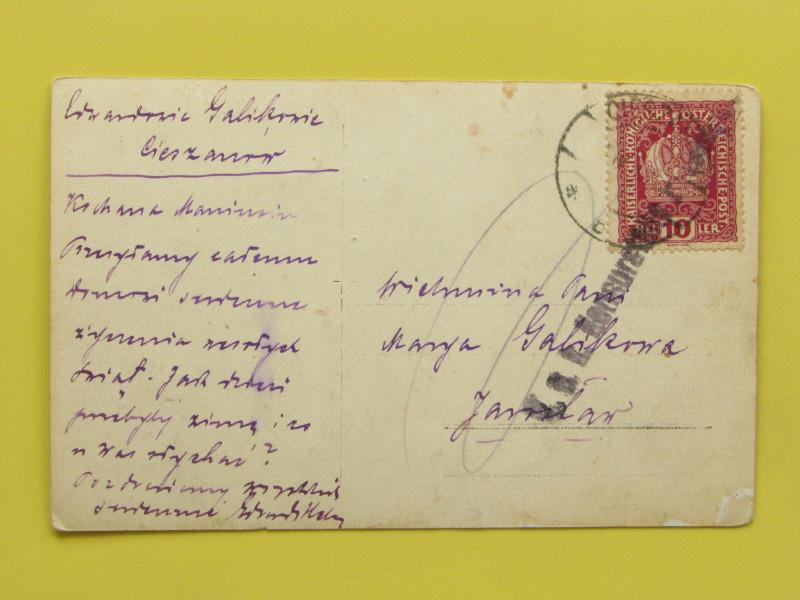 Edwardowie Galikowie
Cieszanów
Kochana Maniusiu
Przesyłamy całemu
domowi serdeczne
życzenia wesołych
Świąt. Jak dzieci
przebyły zimę i co
u Was słychać?
Pozdrawiamy wszystkich
serdecznie
KAISERLICHE KÖNIGLICHE ÖSTERREICHISCHE POST
10
LER
Wielmożna Pani
Marya Galikowa
Jarosław